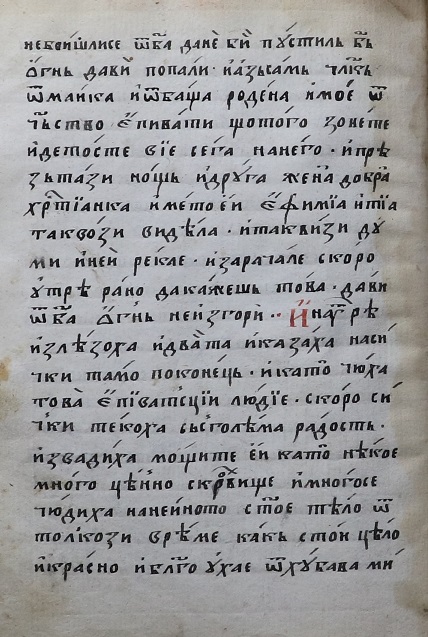 небои́шлисе ѿбг҃а данѐ би́ пꙋ́стилъ въ̀
ѻ҆́гнь давѝ попали · и҆а́зьсамь чл҃кь
ѿма́ика и҆ѿбаща родена и҆мое́ ѿ
ч҃ьство є҆пива́ти що́того зове́те
и҆дето́сте вїе сега̀ нанего̀ · и҆прѣ
зьта́зи нощь и҆дрꙋ́га жена̀ добра̀
хрⷭ҇тїа́нка и҆ме́то е҆и є҆фимїа и҆тїа
таквози видѣла · и҆такви́зи дꙋ
ми и҆ней рекле · и҆зарачале ско́ро
ꙋ҆́трѣ ра́но дака́жешь това · дави
ѿбг҃а ѻ҆́гнь неи҆згорѝ · И҆наꙋ́трѣ
излѣ́зоха и҆два̀та и҆каза́ха наси́
чки та́мо поконець · и҆като̀ чю́ха
това̀ є҆пїва́тсцїи лю́дїе · скоро си́
чки теко́ха сьсголѣ́ма ра́дость ·
и҆зва́диха мо́щите е҆́и като̀ нѣ́кое
мно́го цѣ́нно скро́вище и҆мно́госе
чю́диха нане́йното ст҃ое тѣ́ло ѿ
то́лкози врѣ́ме ка́кь стои́ цѣ́ло
и҆кра́сно и҆бл҃го ꙋ҆́хае ѿхꙋ́бава ми́